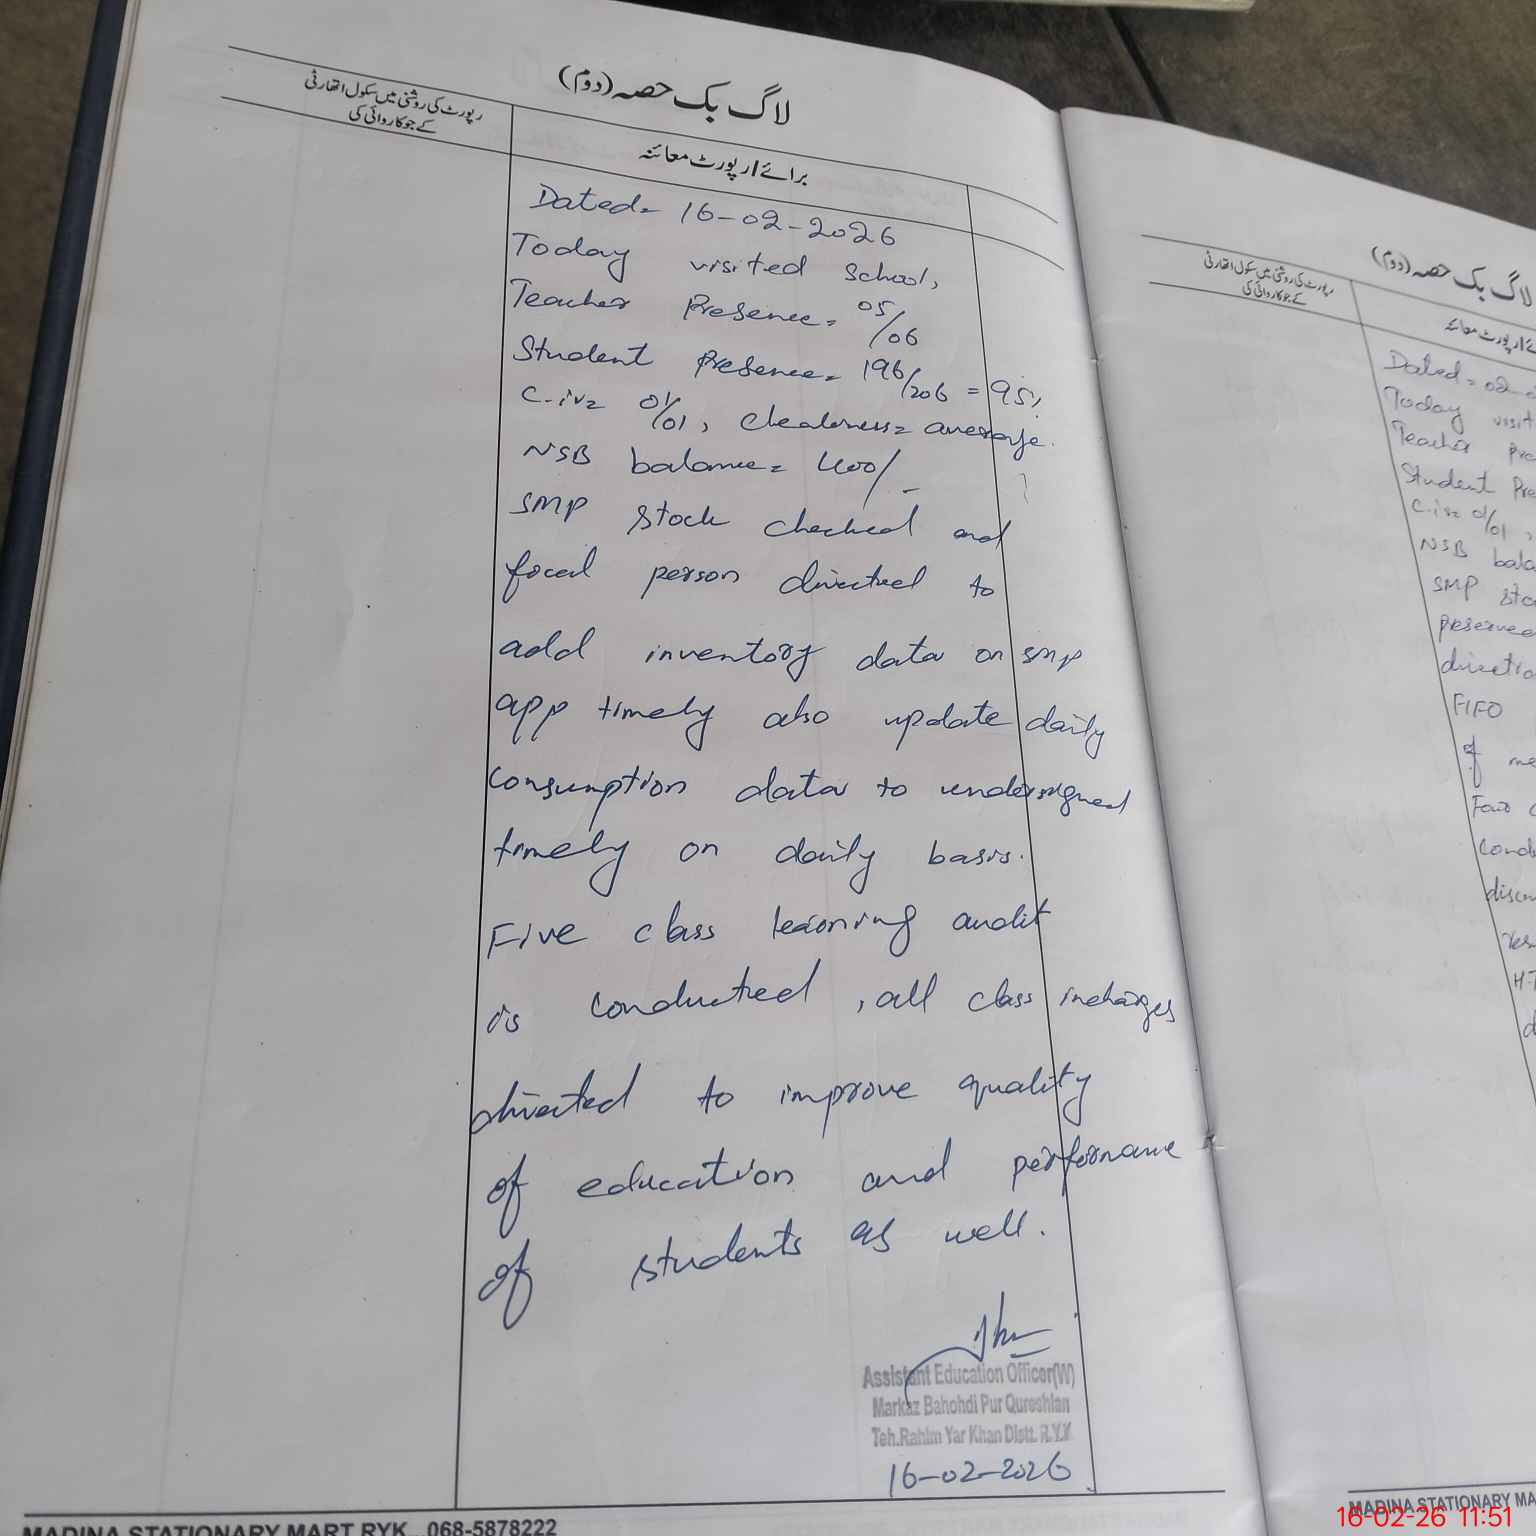 لاگ بک حصہ (دوم)
رپورٹ کی روشنی میں سکول اتھارٹی
کے جو کاروائی کی
برائے ارپورٹ معائنہ
Dated= 16-02-2026
Today visited school,
Teacher Presence= 05/06
Student Presence= 196/206 = 95%
C-iv= 01/01, cleanliness= average.
NSB balance= 400/-
SMP stock checked and
focal person directed to
add inventory data on SMP
app timely also update daily
consumption data to undersigned
timely on daily basis.
Five class learning audit
is conducted, all class incharges
directed to improve quality
of education and performance
of students as well.
Assistant Education Officer(W)
Markaz Bahohdi Pur Qureshian
Teh.Rahim Yar Khan Distt. R.Y.K
16-02-2026
MADINA STATIONARY MART RYK...068-5878222
لاگ بک حصہ (دوم)
رپورٹ کی روشنی میں سکول اتھارٹی
کے جو کاروائی کی
معائنہ
Dated= 02-
Today visit
Teacher Pre
Student Pre
C-iv= 01/01,
NSB bala
SMP sto
preserved
directio
FIFO
of me
Fair
condu
discu
H.T
MADINA STATIONARY MA
16-02-26 11:51